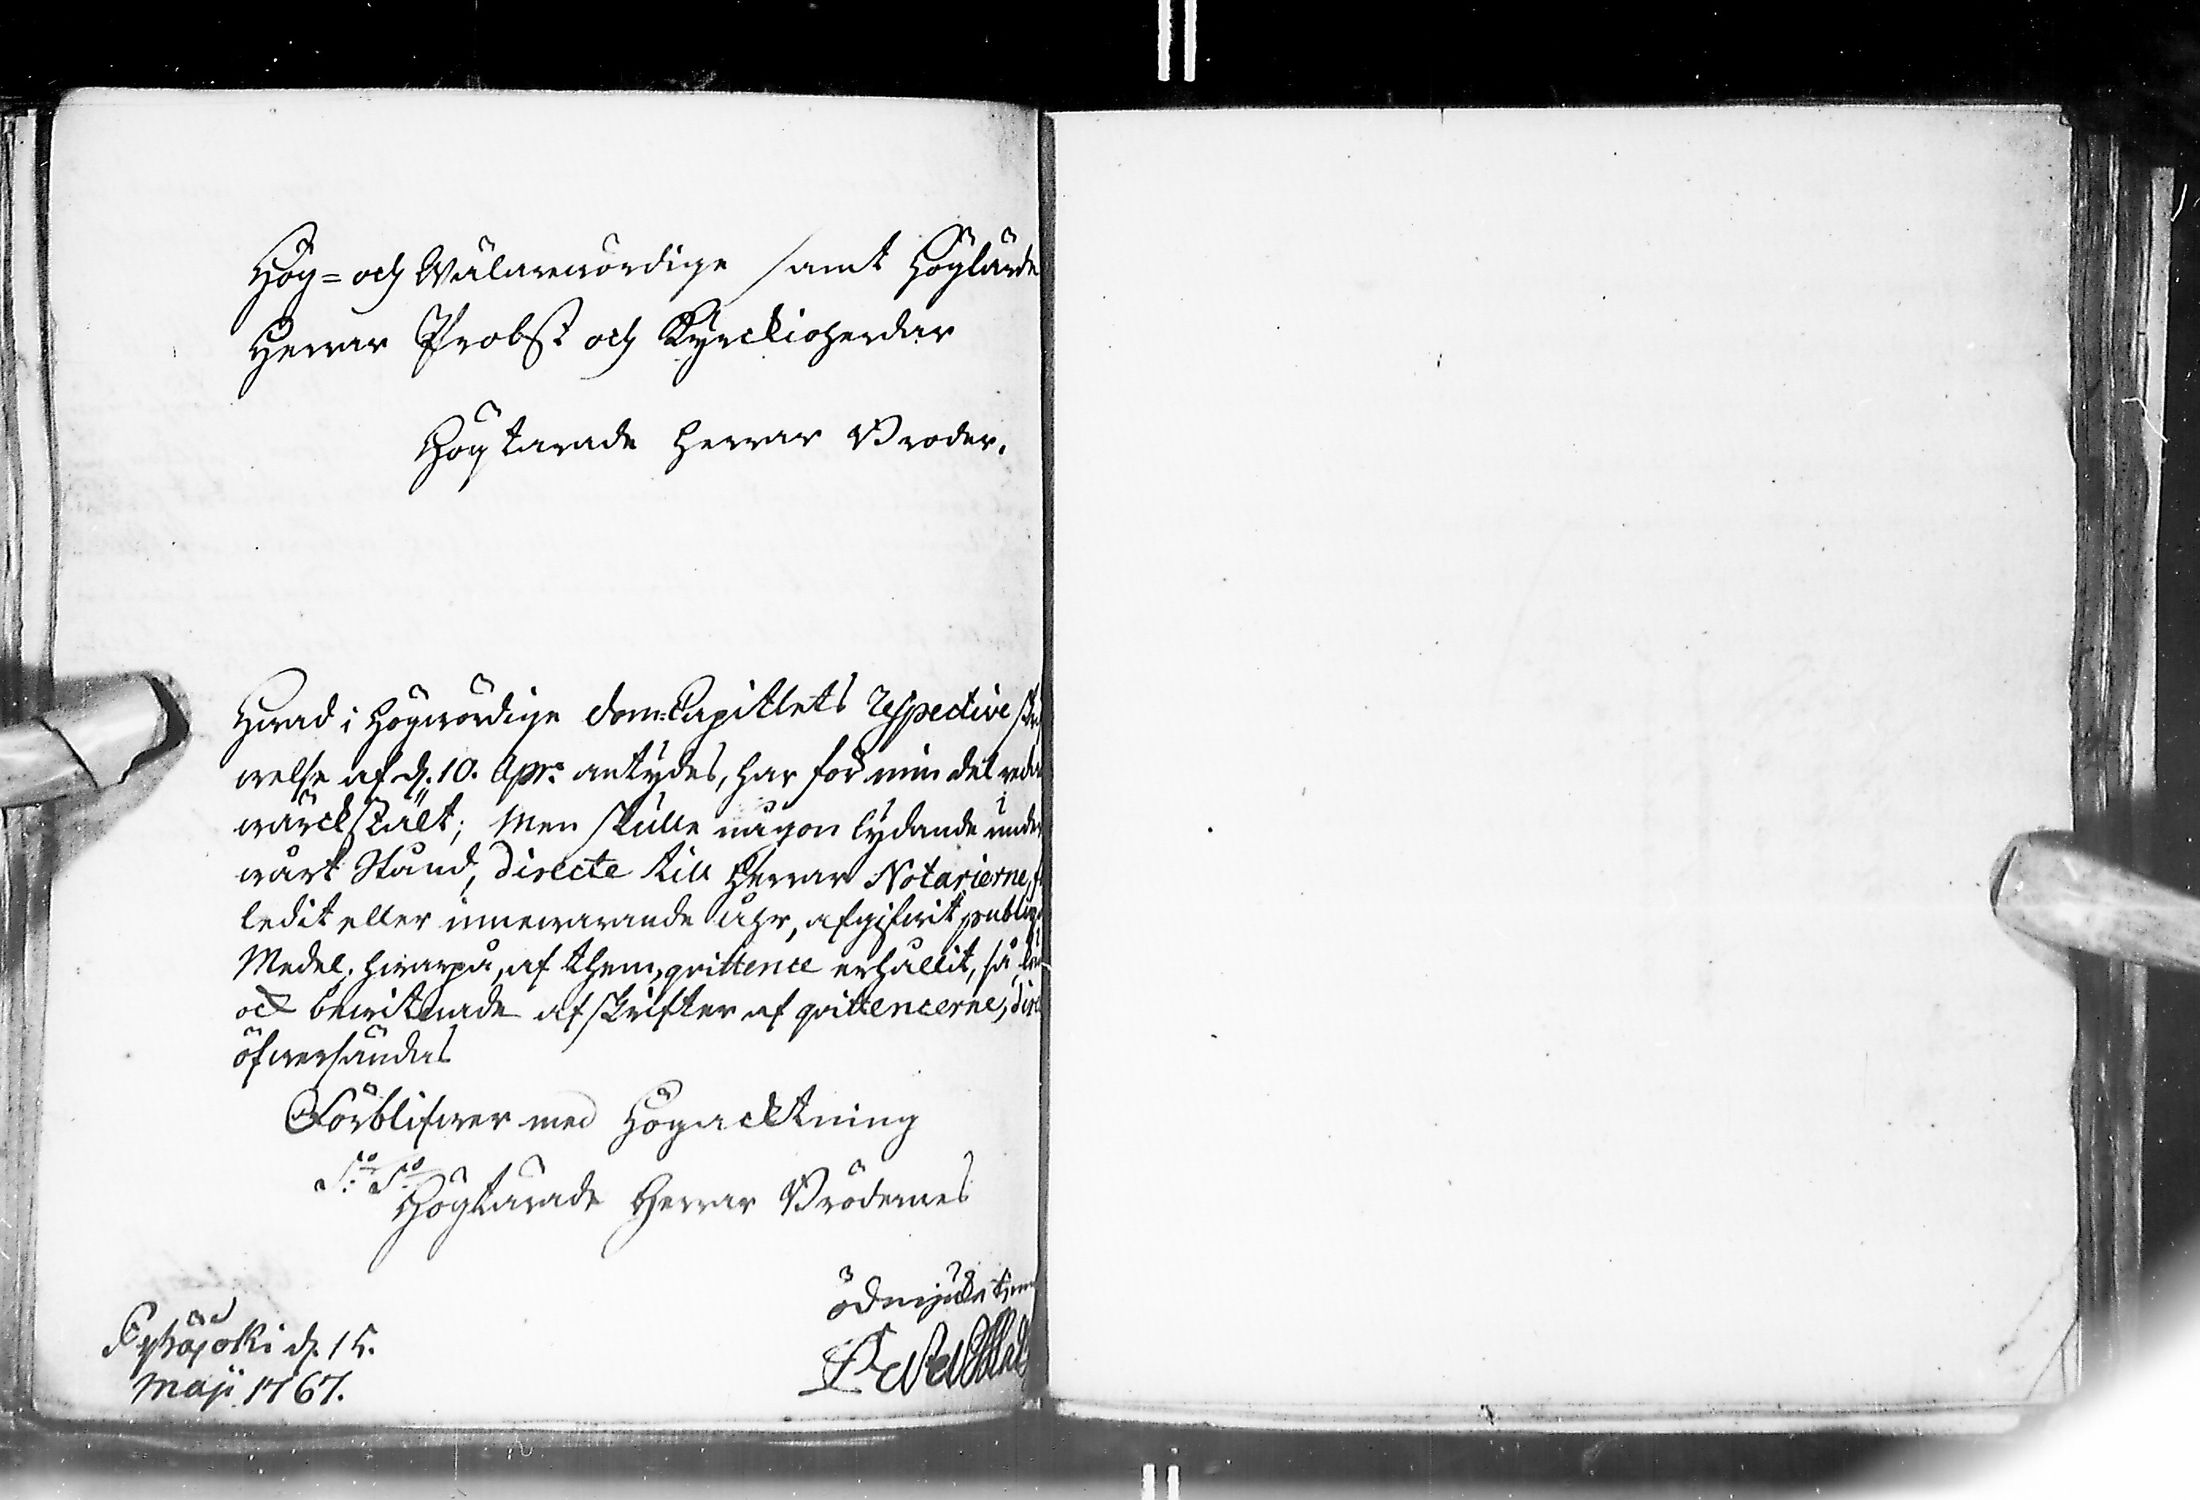 Hög- och Wälärewördige samt Höglärde
Herrar Probst och Kyrckioherdar
Högtärade Herrar Bröder.
Hwad i Högwördige Dom-Capitlets respective skri
welse af d. 10. Apr. antydes, har för min del reda
wärckstält; Men skulle någon lydande under
wårt Stånd, directe till Herrar Notarierne, f
ledit eller innewarande åhr, afgifwit publiqe
Medel, hwarpå, af them, qvittence erhållit, så
och bewitnade afskrifter af qvittencerne, dire
öfwersändas
Förblifwer med Högachtning
S:o S:o
Högtärade Herrar Brödernes
ödmjuke tjena
Pyhäjoki d. 15.
Maji 1767.